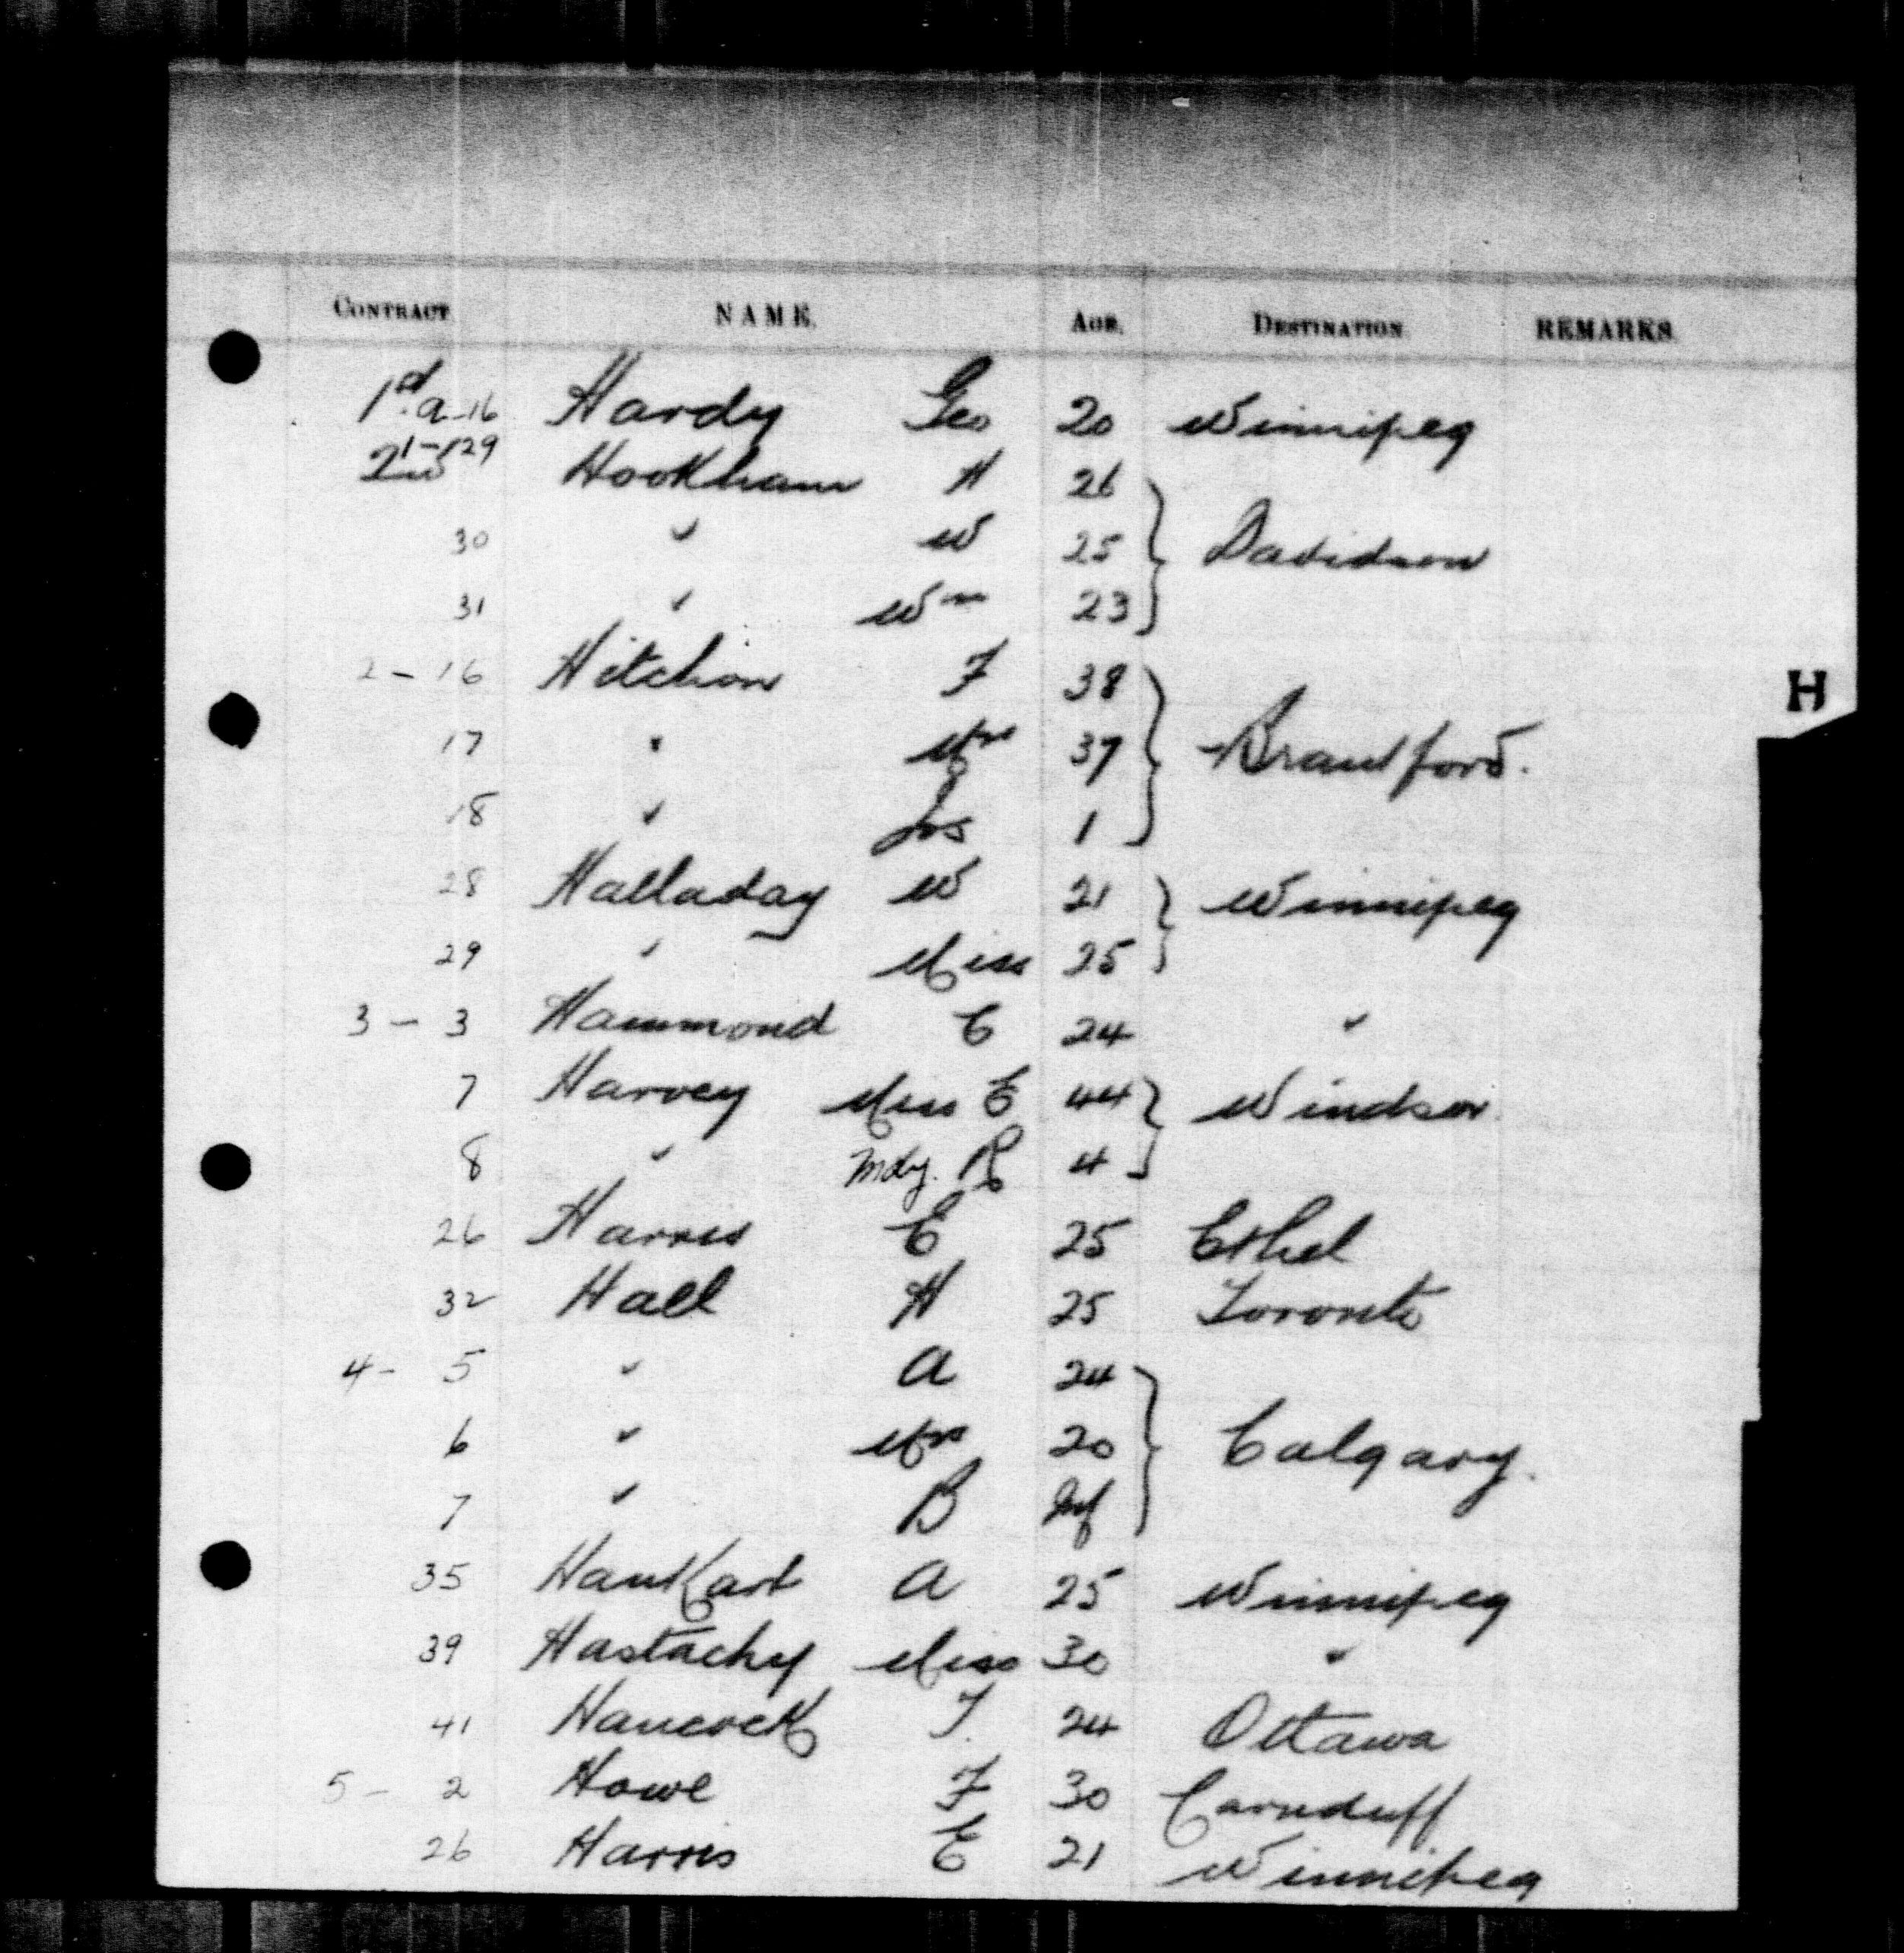 CONTRACT NAME. AGE. DESTINATION REMARKS.
1st a-16 Hardy Geo 20 Winnipeg
2nd 1-129 Hookham H 26
30 " W 25 Davidson
31 " Wm 23
2-16 Hitchon F 38
17 " Mrs 37 Brantford.
18 " Jos 1
28 Halladay W 21 Winnipeg
29 " Miss 25
3-3 Hammond C 24 "
7 Harvey Miss E 44 Windsor
8 " R 4
26 Harris E 25 Ethel
32 Hall H 25 Toronto
4-5 " A 24
6 " Mrs 20 Calgary.
7 " B Inf
35 HanKart A 25 Winnipeg
39 Hastachy Miss 30 "
41 Hancock T. 24 Ottawa
5-2 Howe F 30 Carnduff
26 Harris E 21 Winnipeg
H